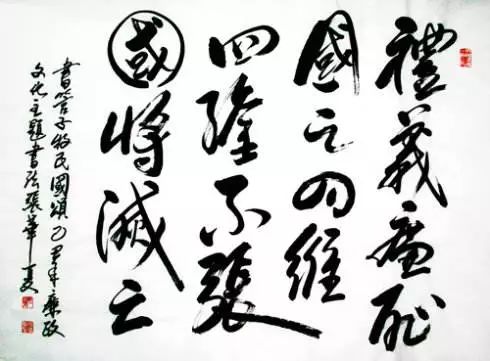 禮義廉恥
國之四維
四維不張
國將滅亡
書管子牧民國頌 年廉政
文化主題書法張華夏